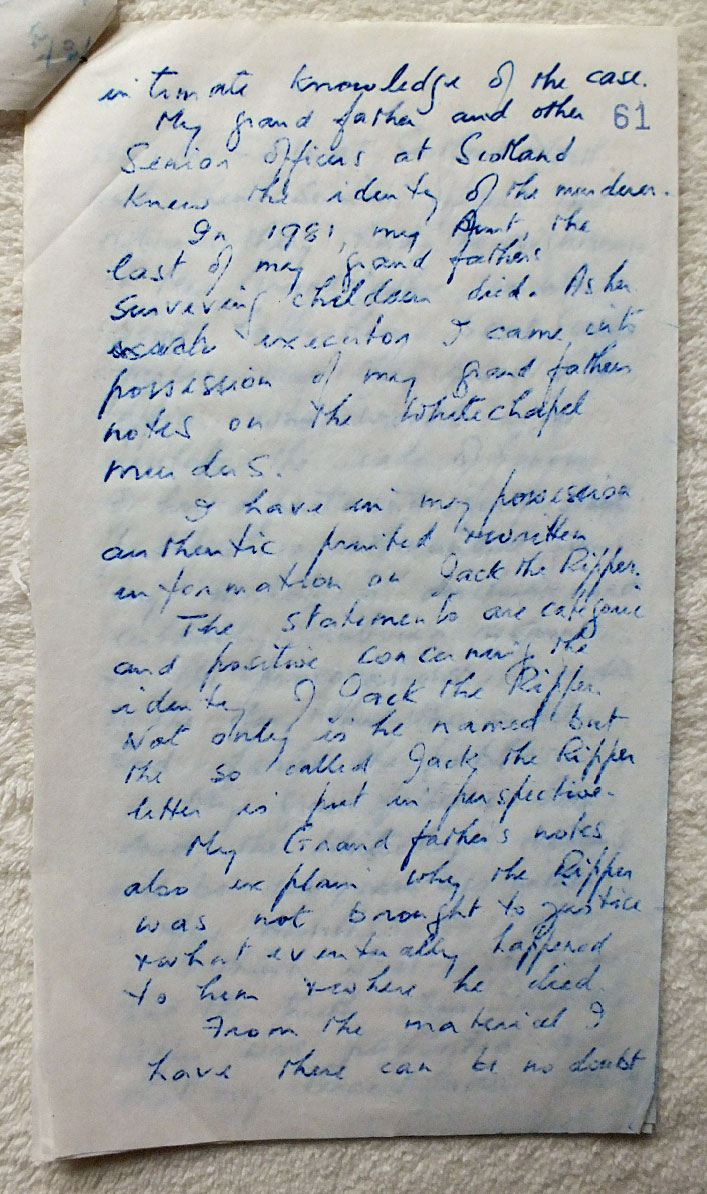 intimate knowledge of the case.
My grand father and other
61
Senior officers at Scotland
knew the identy of the murderer.
In 1981, my Aunt, the
last of my grand fathers
surveving children died. As her
executor I came into
possession of my grand fathers
notes on the Whitechapel
murders.
I have in my possession
authentic printed + written
information on Jack the Ripper.
The statements are categoric
and positive concerning the
identey of Jack the Ripper.
Not only is he named but
the so called Jack the Ripper
letter is put in perspective.
My Grand father's notes
also explain why the Ripper
was not brought to justice
+ what eventually happened
to him + where he died.
From the material I
have there can be no doubt